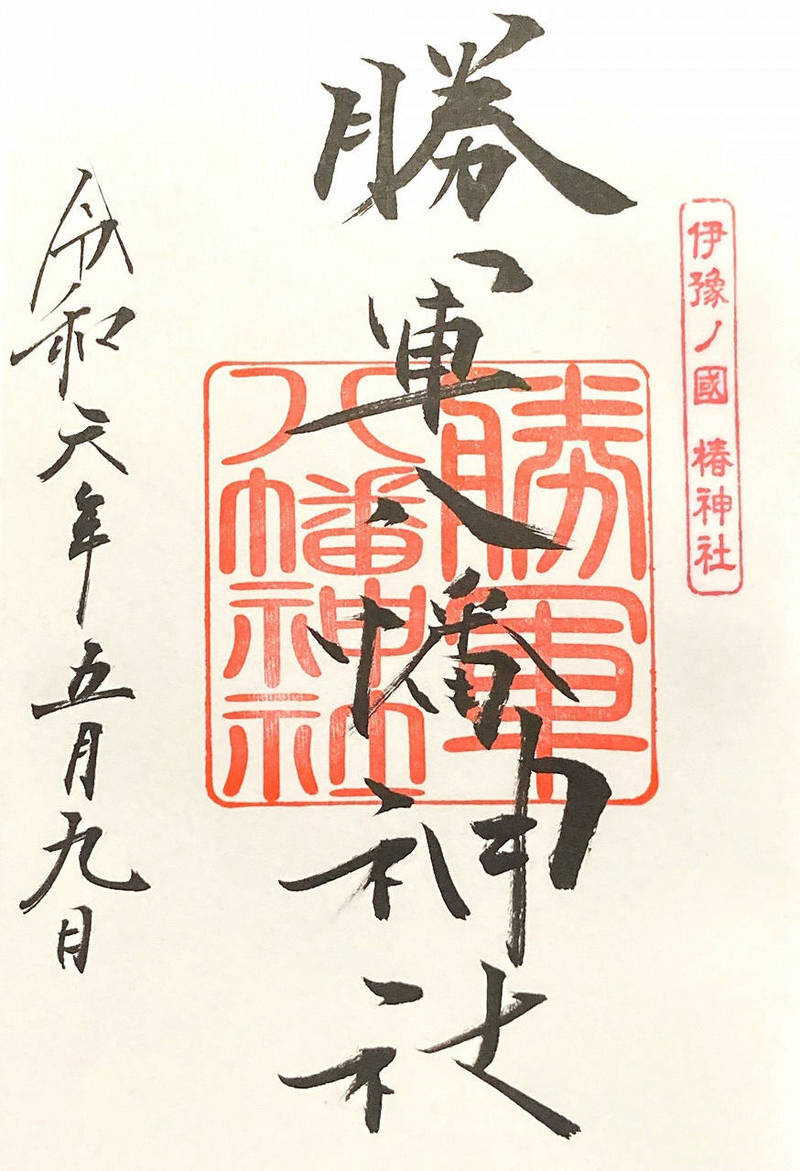 伊豫ノ國 椿神社
勝軍八幡神社
勝軍
八幡
神社
令和六年五月九日